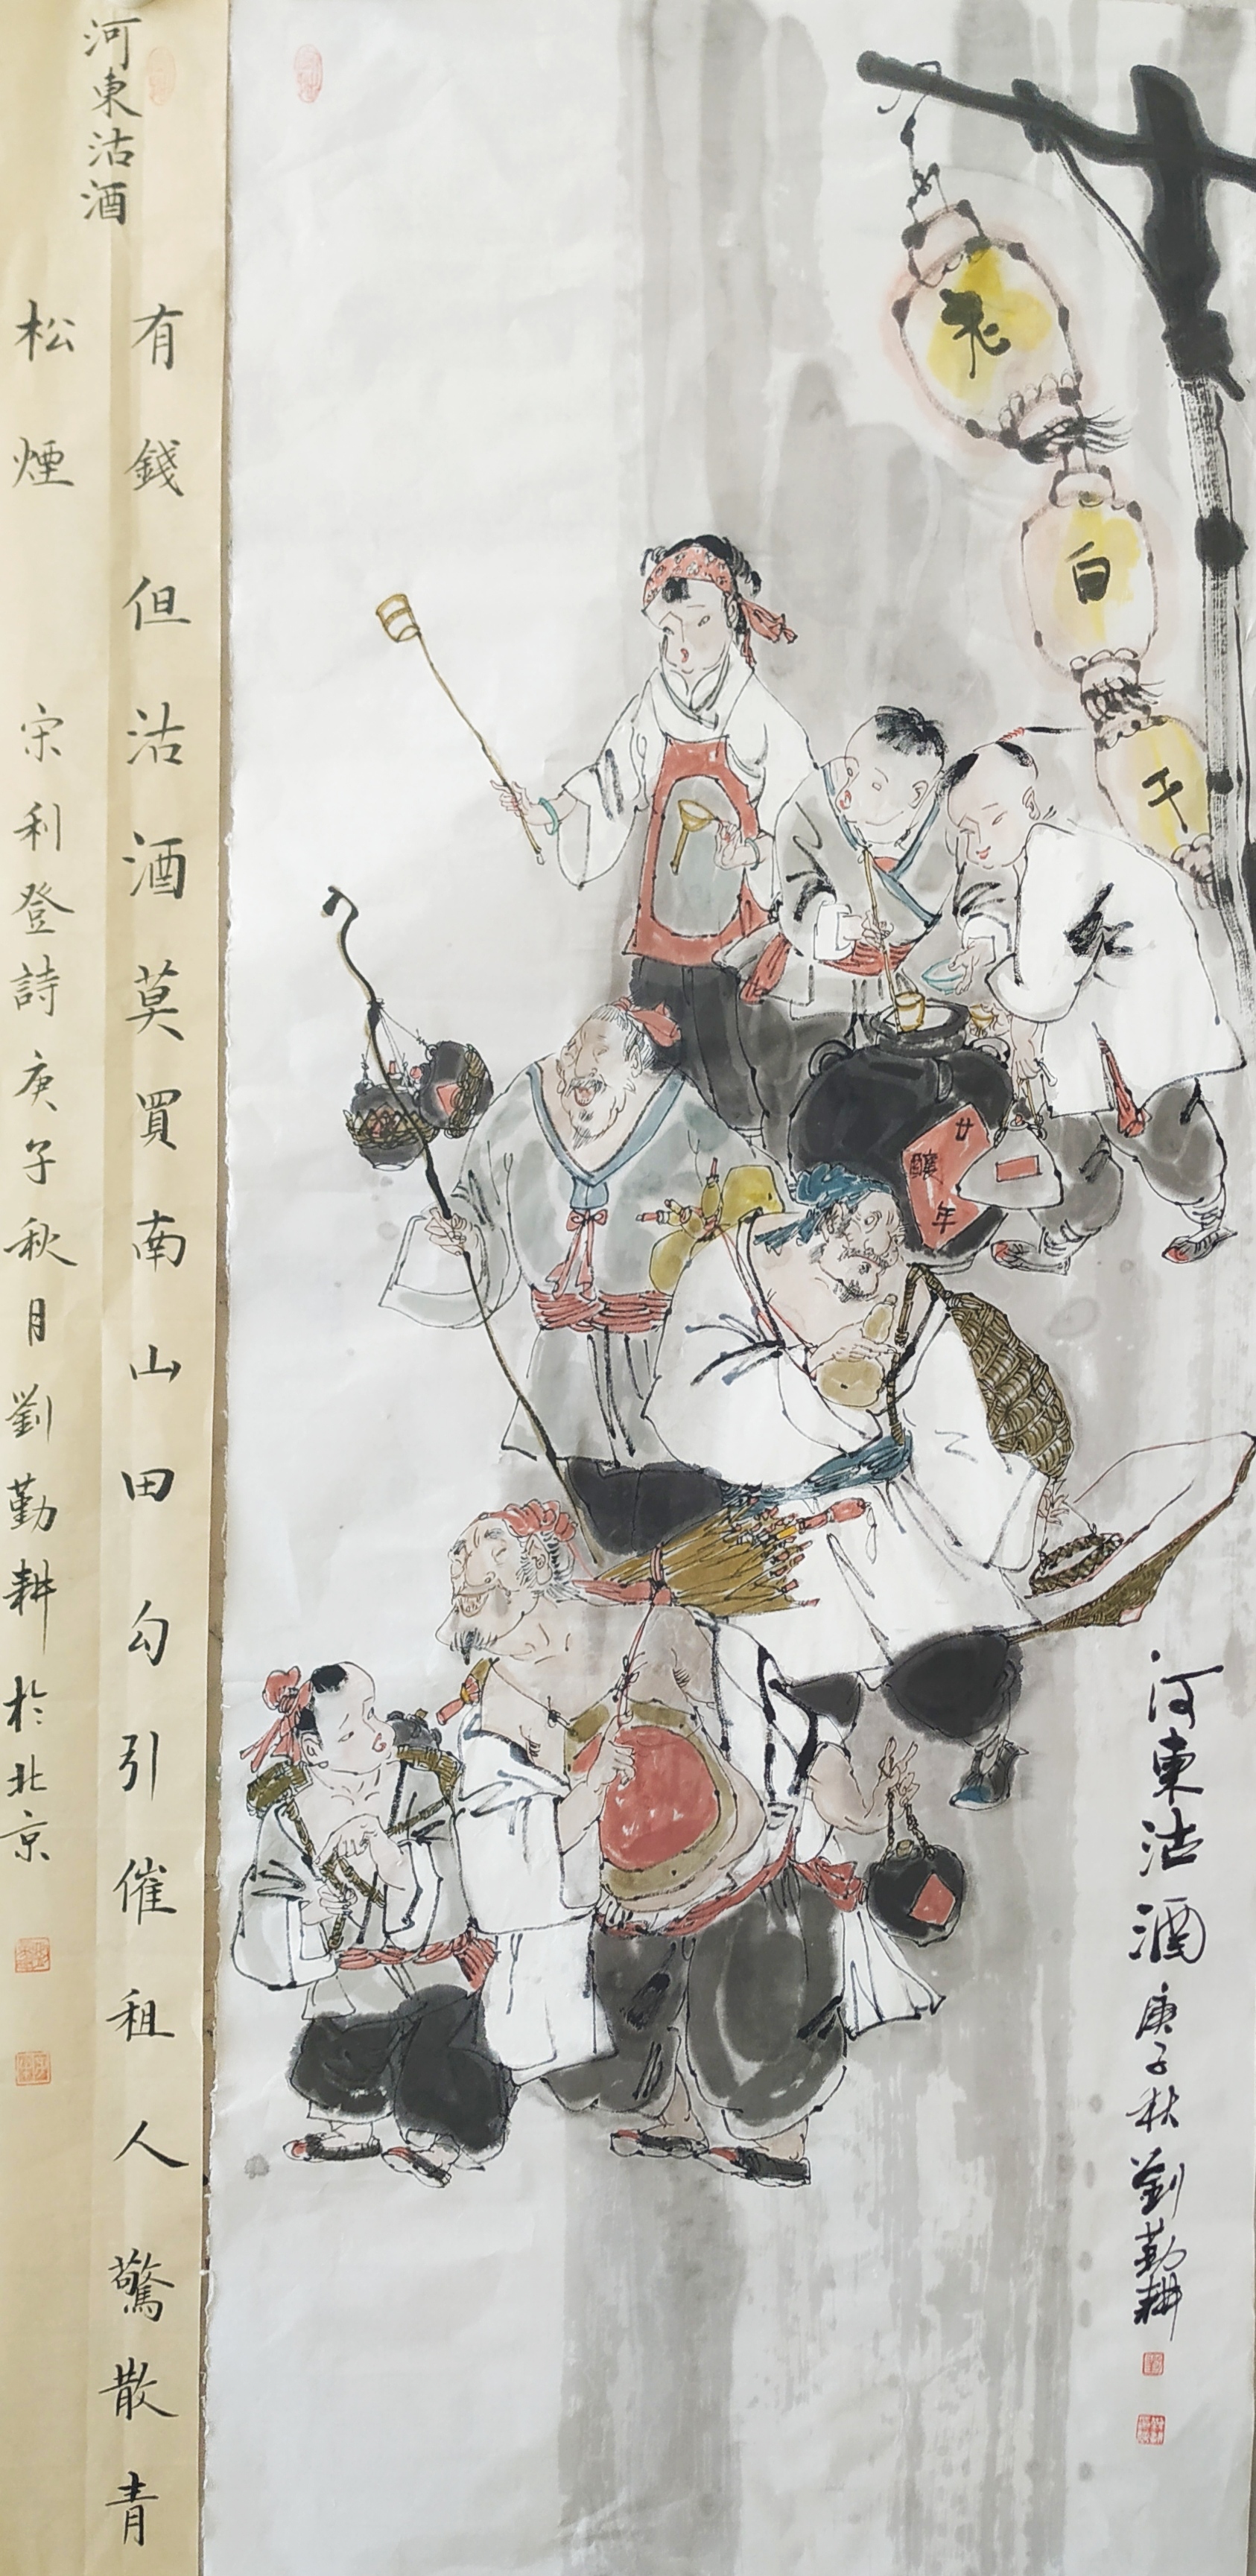 河東沽酒
有錢但沽酒莫買南山田勾引催租人驚散青
松煙
宋利登詩庚子秋月劉勤耕於北京
老
白
干
廿
年
釀
河東沽酒
庚子秋劉勤耕